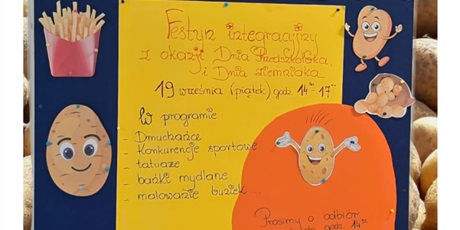 Festyn integracyjny
z okazji Dnia Przedszkolaka
i Dnia ziemniaka
19 września (piątek) godz. 14⁰⁰-17⁰⁰
W programie:
- Dmuchańce
- Konkurencje sportowe
- tatuaże
- bańki mydlane
- malowanie buziek
Prosimy o odbiór
godz. 14